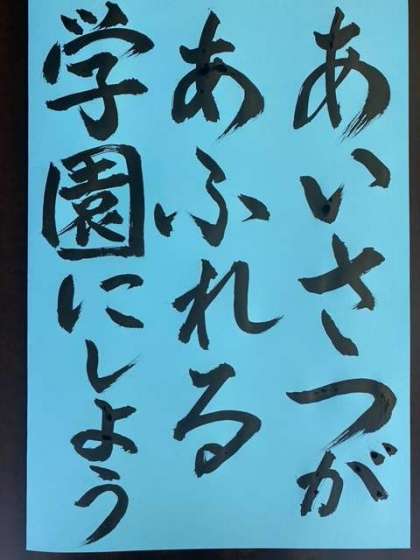 あいさつが
あふれる
学園にしよう